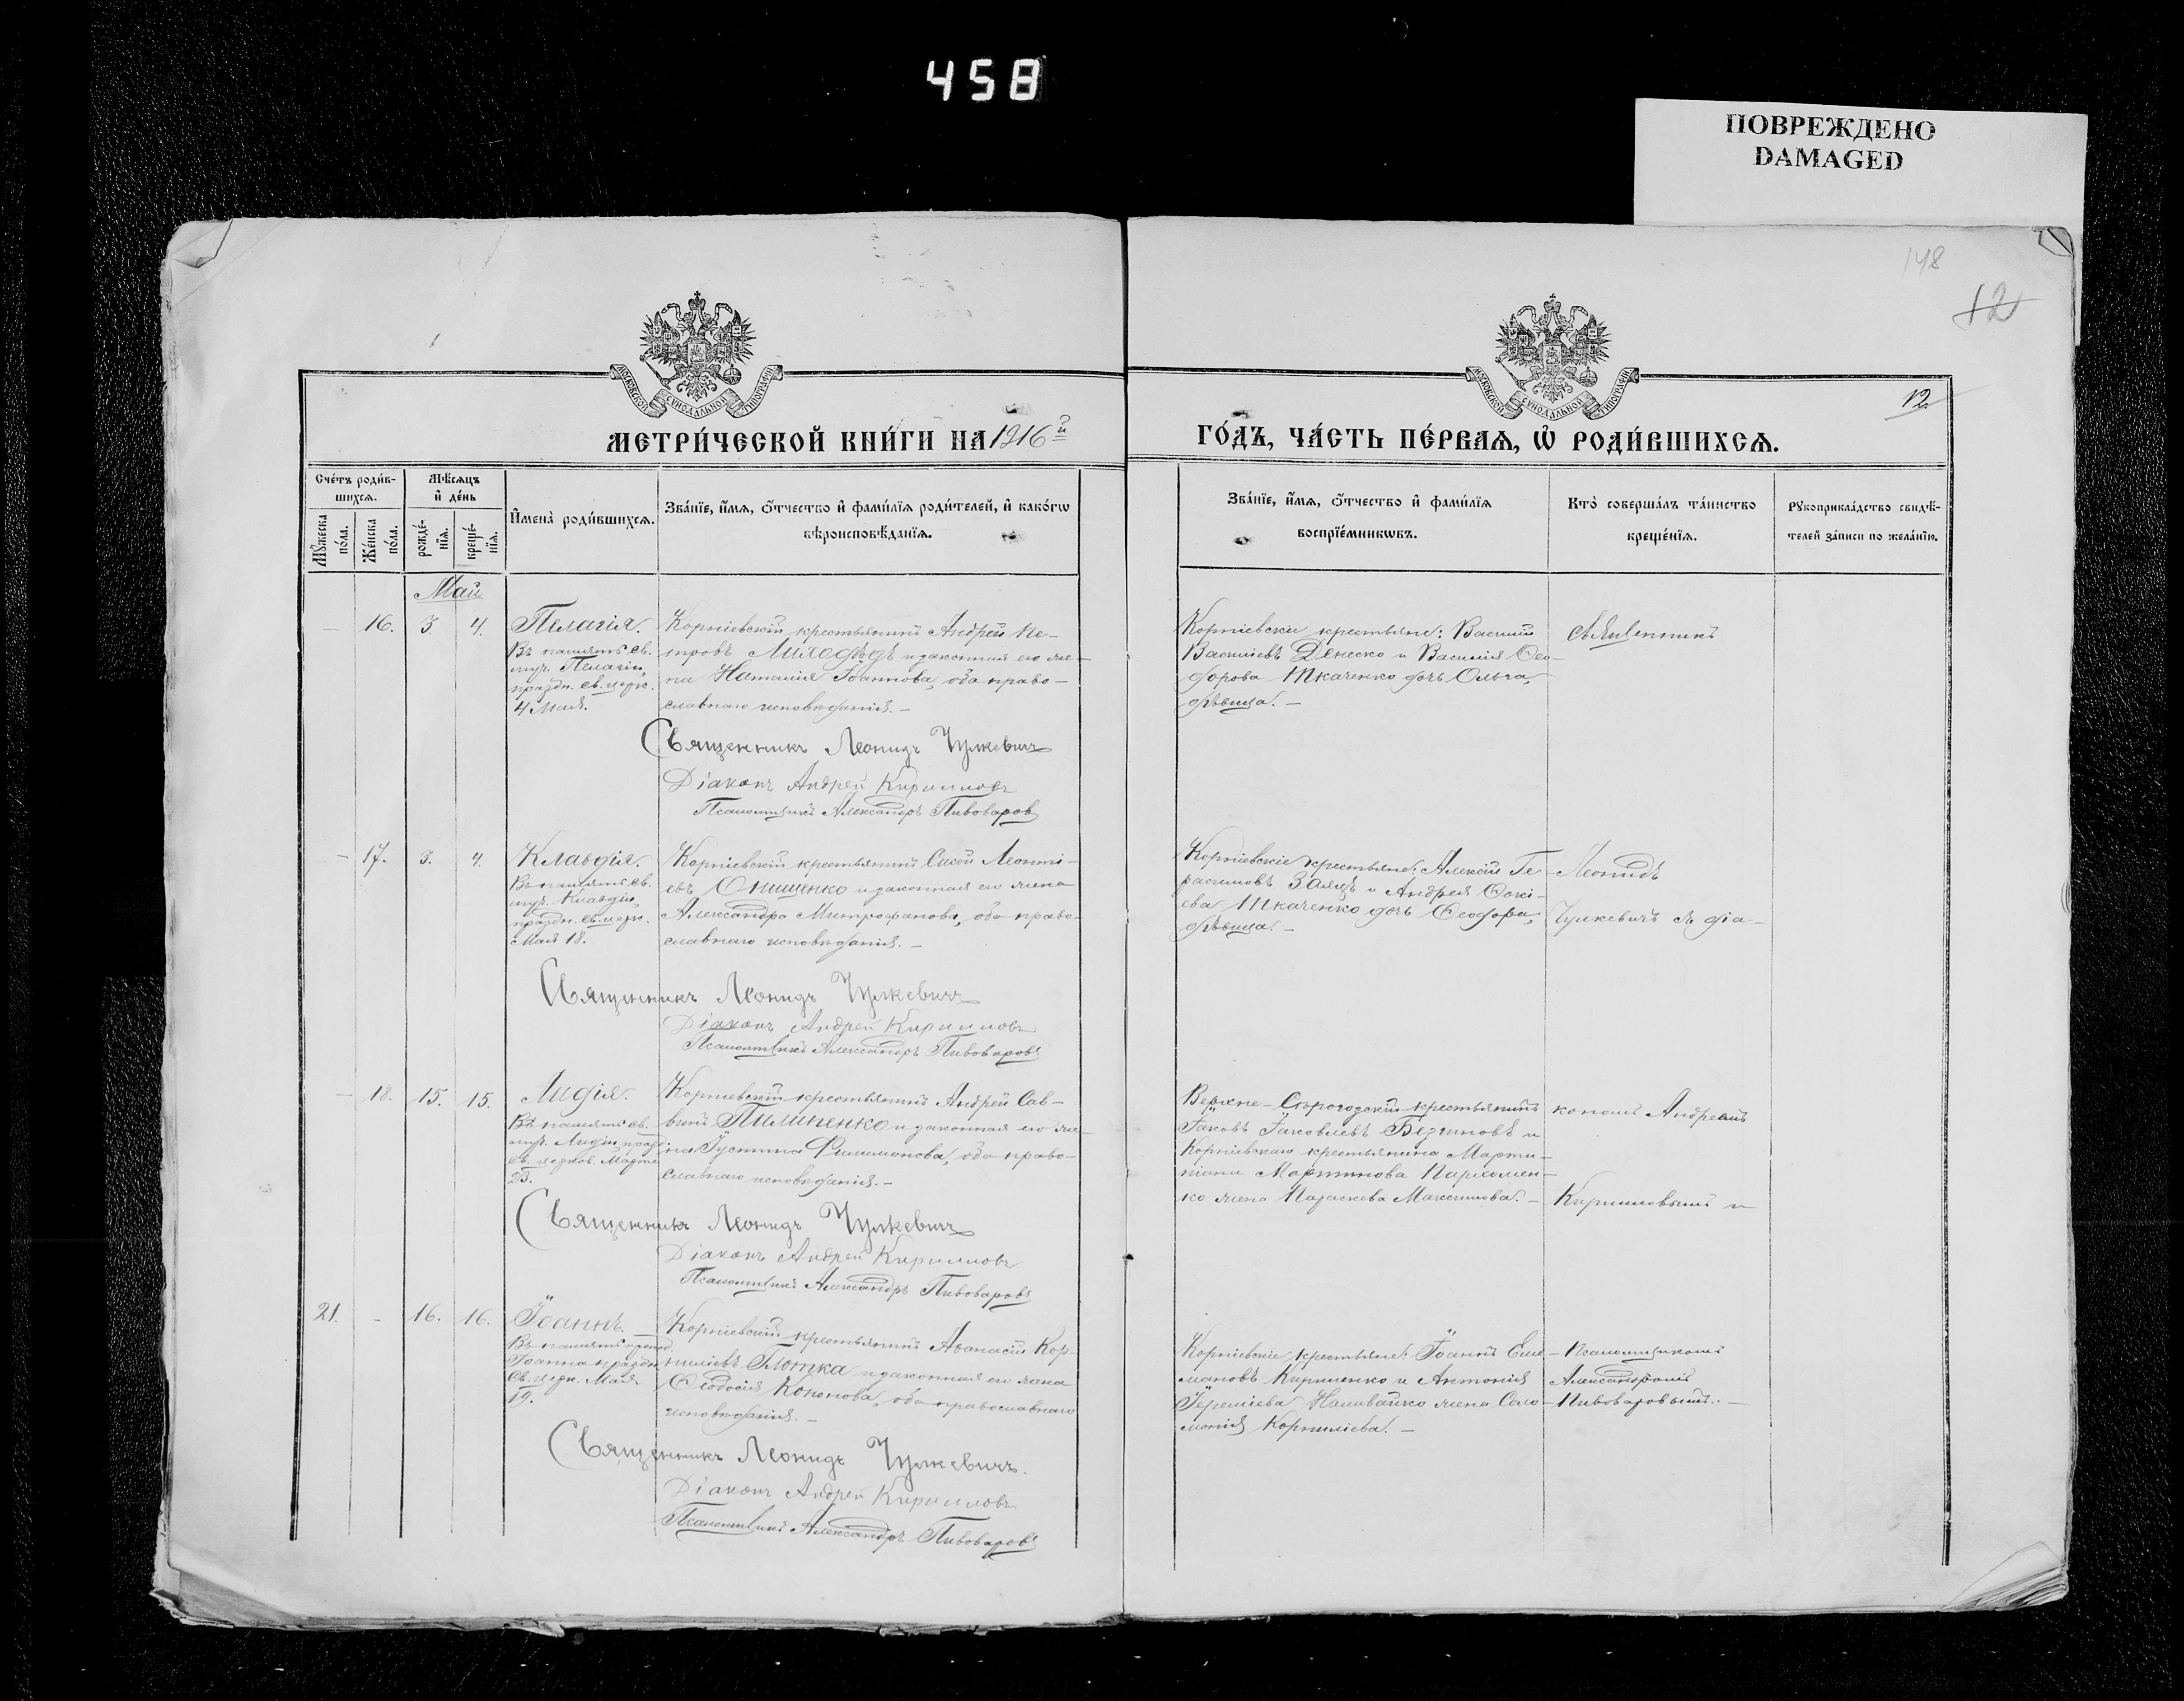 458
ПОВРЕЖДЕНО
DAMAGED
148
12
12.
МОСКОВСКОЙ СУНОДАЛЬНОЙ ТИПОГРАФІИ
МОСКОВСКОЙ СУНОДАЛЬНОЙ ТИПОГРАФІИ
МЕТРИ́ЧЕСКОЙ КНИ́ГИ НА 1916й
ГО́ДЪ, ЧА́СТЬ ПЕ́РВАѦ, Ѡ҆ РОДИ́ВШИХСѦ.
Сче́тъ роди́в-
шихсѧ.
Мѣ́сѧцъ
и҆ де́нь
Мꙋ́жеска
по́ла.
Же́нска
по́ла.
рожде́-
нїѧ.
креще́-
нїѧ.
И҆мена̀ роди́вшихсѧ.
Зва́нїе, и҆́мѧ, ѻ҆́тчество и҆ фами́лїѧ роди́телей, и҆ како́гѡ
вѣроисповѣ́данїѧ.
Зва́нїе, и҆́мѧ, ѻ҆́тчество и҆ фами́лїѧ
воспрїе́мникѡвъ.
Кто̀ соверша́лъ та́инство
креще́нїѧ.
Рꙋкоприкла́дство свидѣ́-
телей за́писи по жела́нїю.
Май
– 16. 3. 4. Пелагія.
Въ память св.
муч. Пелагіи,
праздн. св. церк.
4 Мая.
Корніевскій крестьянинъ Андрей Пе-
тровъ Милодѣдъ и законная его же-
на Наталія Іоаннова, оба право-
славнаго исповѣданія. –
Священникъ Леонидъ Чулкевичъ
Діаконъ Андрей Кирилловъ
Псаломщикъ Александръ Пивоваров
Корніевскіе крестьяне: Василій
Васильевъ Денеско и Василія Ѳео-
дорова Ткаченко дочь Ольга,
дѣвица. –
Священникъ
– 17. 3. 4. Клавдія.
Въ память св.
муч. Клавдіи,
праздн. св. церк.
Мая 18.
Корніевскій крестьянинъ Сисой Леонті-
евъ Онищенко и законная его жена
Александра Митрофанова, оба право-
славнаго исповѣданія. –
Священникъ Леонидъ Чулкевичъ
Діаконъ Андрей Кирилловъ
Псаломщикъ Александръ Пивоваровъ
Корніевскіе крестьяне: Алексій Ге-
расимовъ Заяцъ и Андрея
ева Ткаченко дочь Ѳеодора,
дѣвица. –
Леонидъ
Чулкевичъ съ діа-
– 18. 15. 15. Лидія.
Въ память св.
муч. Лидіи, празд.
св. церков. Марта
23.
Корніевскій крестьянинъ Андрей Сав-
винъ Пилипенко и законная его же-
на Іустина Филимонова, оба право-
славнаго исповѣданія. –
Священникъ Леонидъ Чулкевичъ
Діаконъ Андрей Кирилловъ
Псаломщикъ Александръ Пивоваровъ
Верхне-Сѣрогозскій крестьянинъ
Іаковъ Іаковлевъ и
Корніевскаго крестьянина Марти-
ніана Мартинова Пархомен-
ко жена Параскева Максимова. –
кономъ Андреемъ
Кирилловымъ и
21. – 16. 16. Іоаннъ. –
Въ память препод.
Іоанна праздн.
св. церк. Мая
19.
Корніевскій крестьянинъ Аѳанасій Кор-
ниліевъ Глотка и законная его жена
Ѳеодосія Кононова, оба православнаго
исповѣданія. –
Священникъ Леонидъ Чулкевичъ.
Діаконъ Андрей Кирилловъ
Псаломщикъ Александръ Пивоваровъ
Корніевскіе крестьяне: Іоаннъ Еме-
льановъ Кириленко и Антонія
Іереміева Наливайко жена Соло-
монія Корниліева. –
Псаломщикомъ
Александромъ
Пивоваровымъ. –